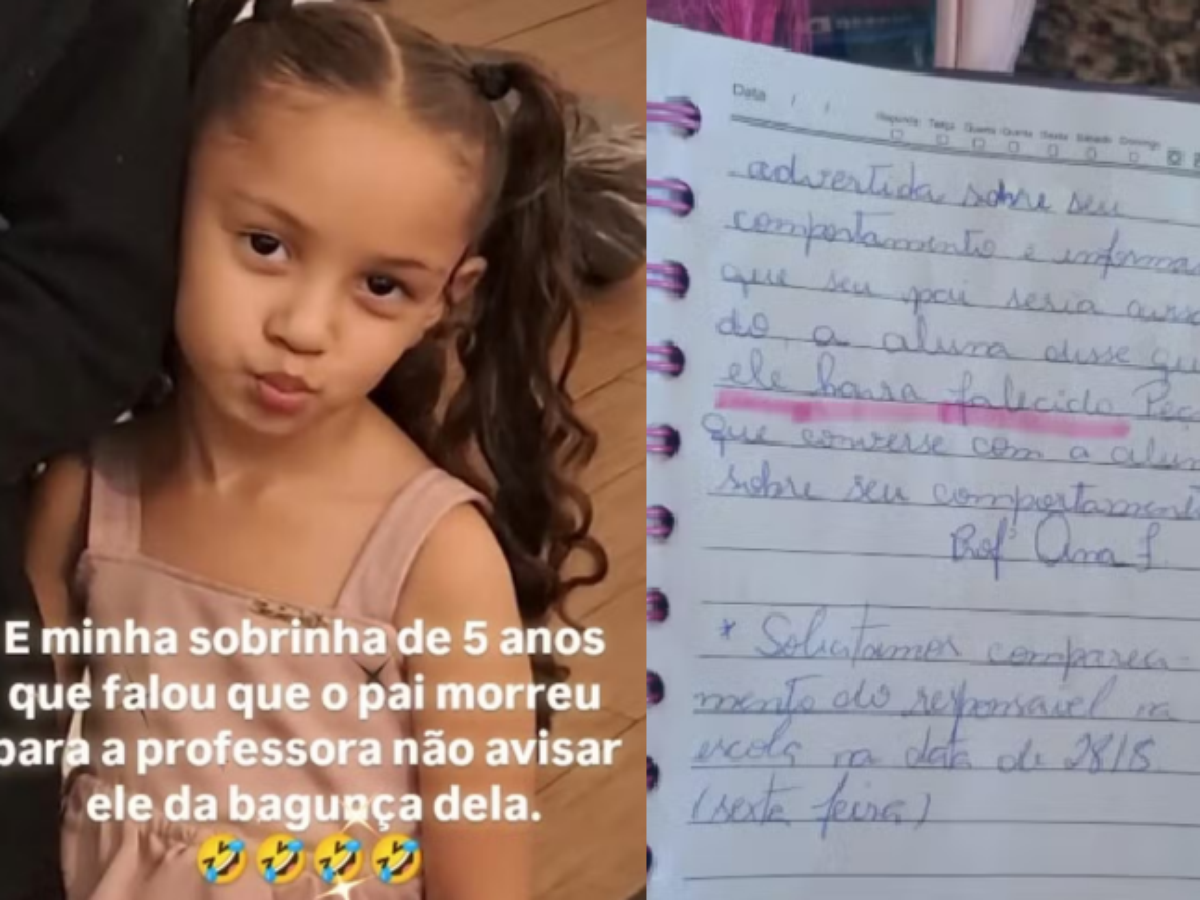 E minha sobrinha de 5 anos
que falou que o pai morreu
para a professora não avisar
ele da bagunça dela.
🤣🤣🤣🤣
Data / /
Segunda Terça Quarta Quinta Sexta Sábado Domingo
advertida sobre seu
comportamento e informa
que seu pai seria avisa
do, a aluna disse que
ele havia falecido Peç
que converse com a alun
sobre seu comportament
Profª Ana L
* Solicitamos compareci-
mento do responsável na
escola na data de 28/5
(sexta feira)